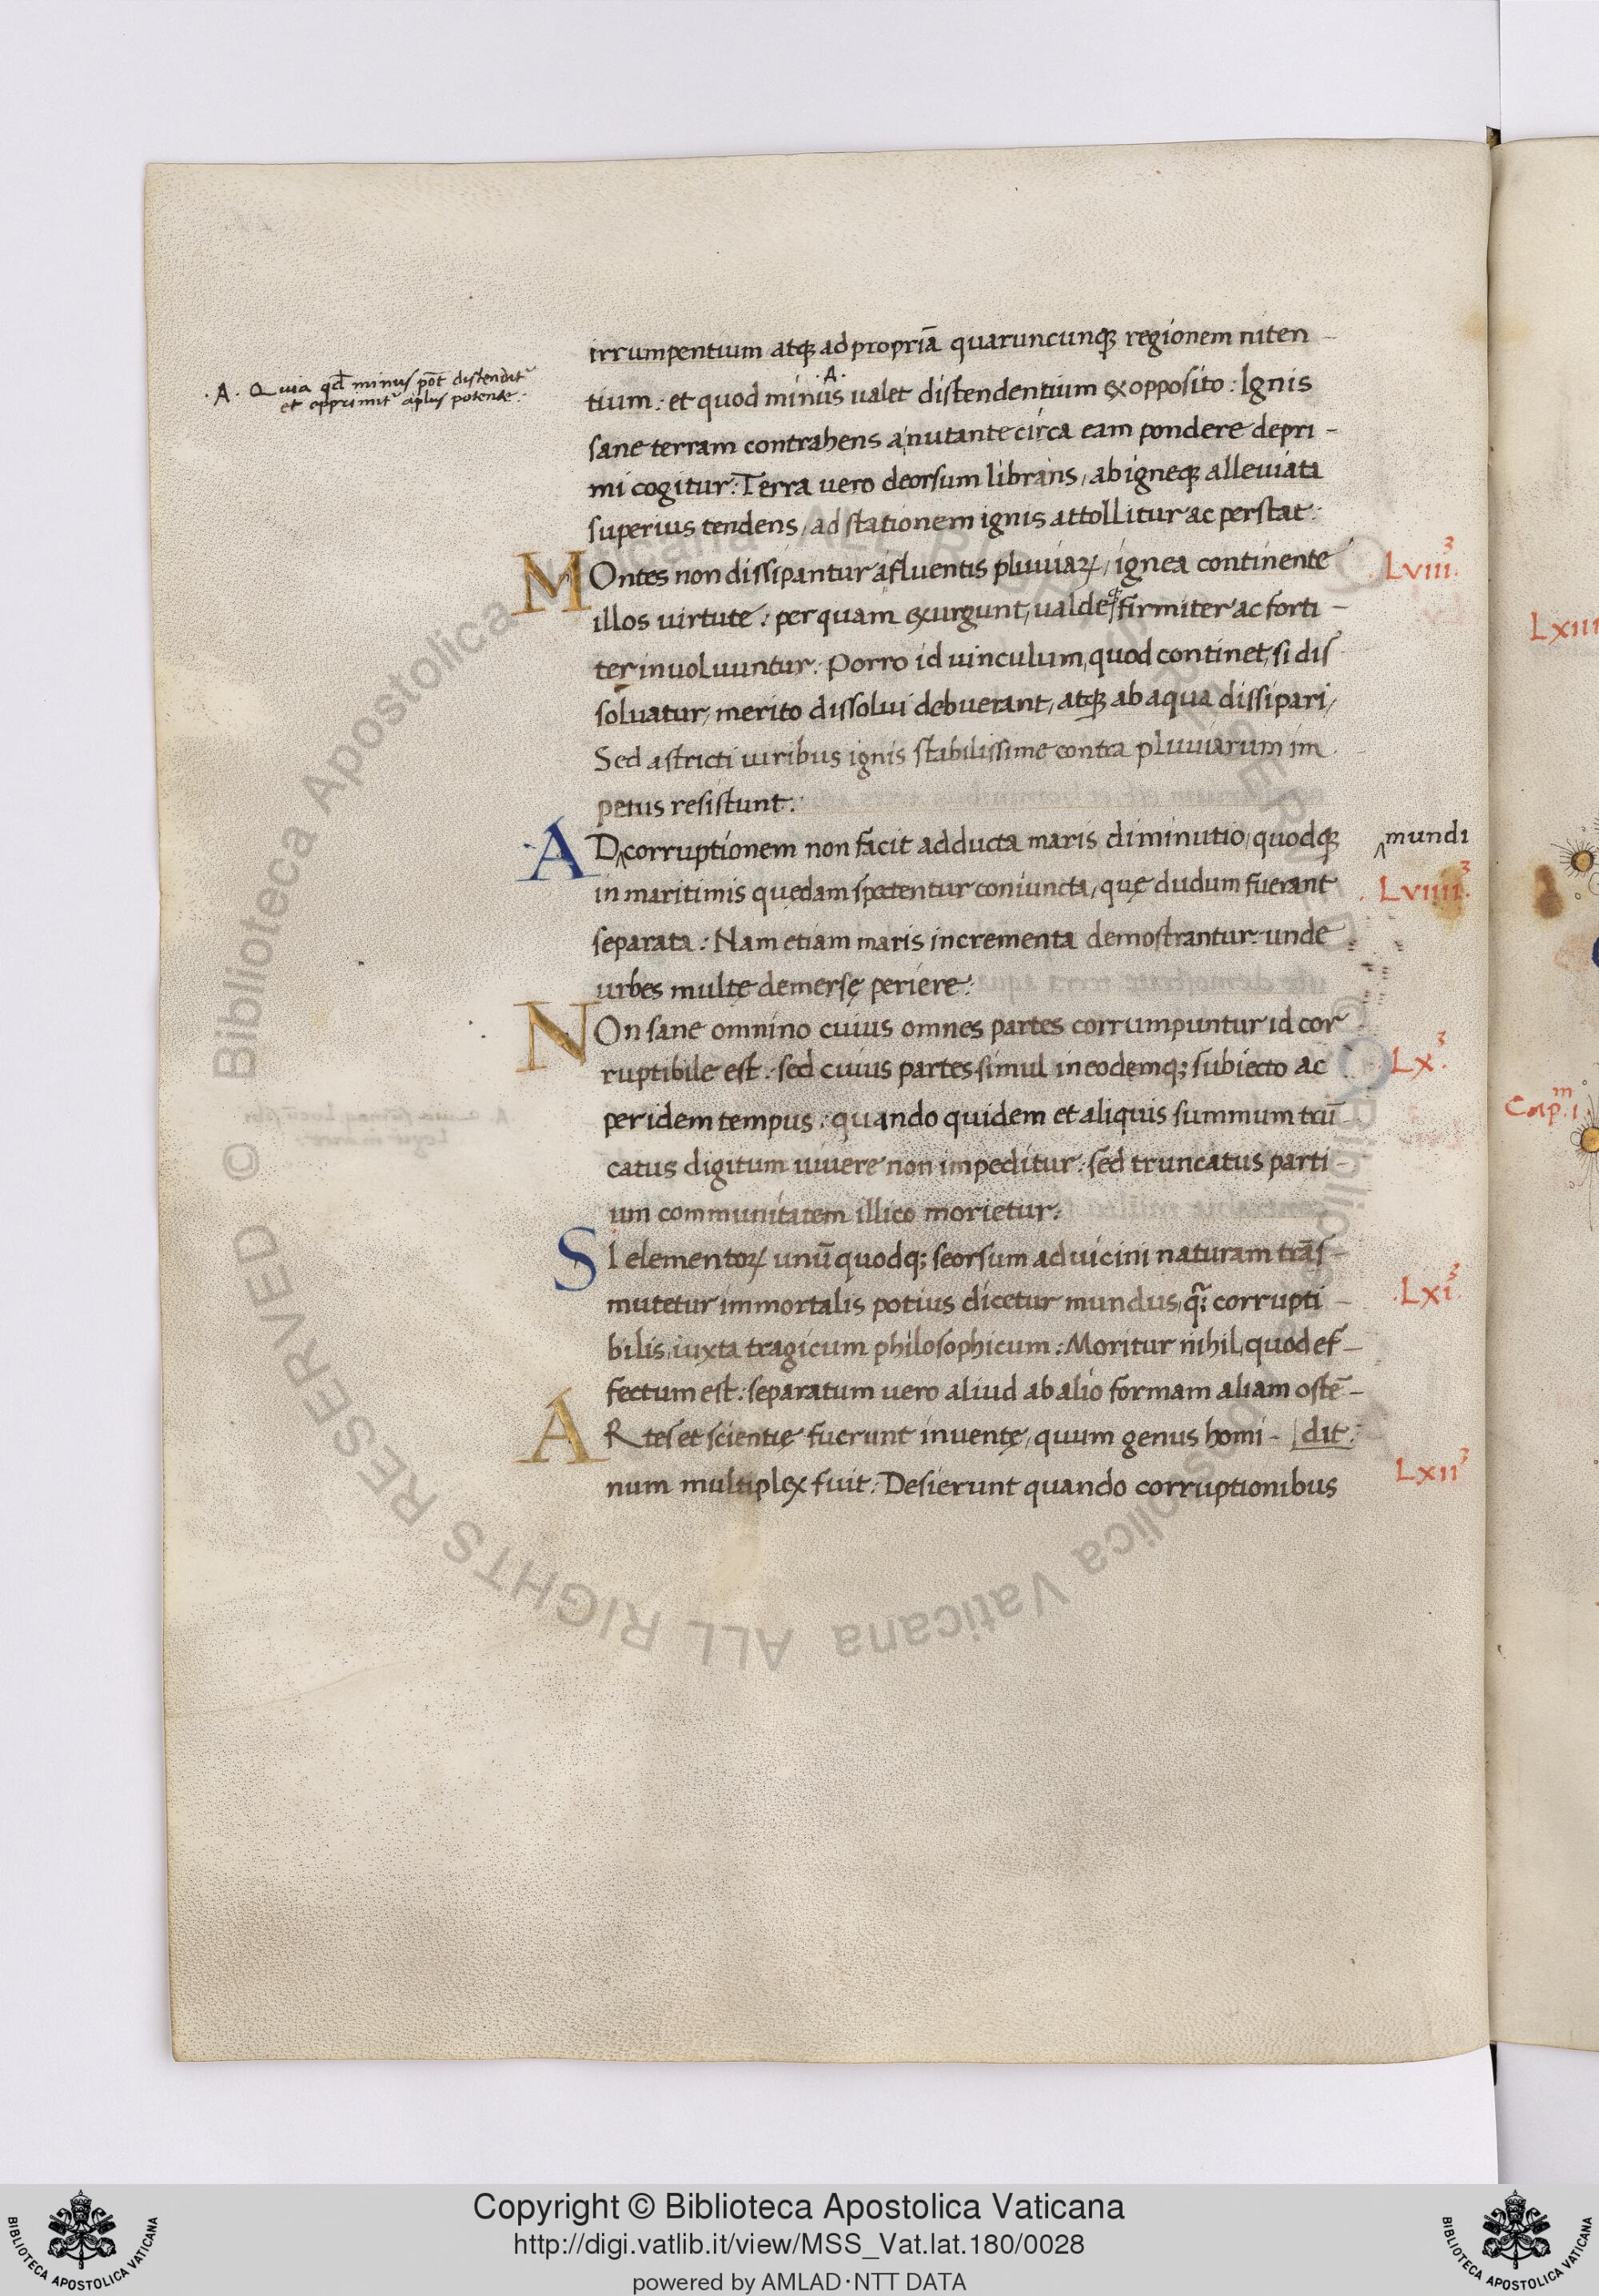 irrumpentium atqꝫ ad propriā quaruncunqꝫ regionem niten-
.A.
tium: et quod minus ualet distendentium ex opposito: Ignis
.A. Quia qđ minus pōt distendit᷑
et opprimit᷑ a plus potente:
sane terram contrahens a nutante circa eam pondere depri-
mi cogitur: Terra uero deorsum librans, ab igneqꝫ alleuiata
superius tendens, ad stationem ignis attollitur ac perstat:
MOntes non dissipantur a fluentis pluuiaꝝ, ignea continente
.Lviii.³
illos uirtute: per quam exurgunt, ualdeqꝫ firmiter ac forti-
ter inuoluuntur: Porro id uinculum, quod continet, si dis
soluatur, merito dissolui debuerant, atqꝫ ab aqua dissipari,
Sed astricti uiribus ignis stabilissime contra pluuiarum im
petus resistunt:
AD‸corruptionem non facit adducta maris diminutio, quodqꝫ
‸mundi
in maritimis quędam spectentur coniuncta, quę dudum fuerant
.Lviiii.³
separata: Nam etiam maris incrementa demostrantur: unde
urbes multę demersę periere:
NOn sane omnino cuius omnes partes corrumpuntur id cor
ruptibile est: sed cuius partes simul in eodemqꝫ subiecto ac
Lx.³
per idem tempus: quando quidem et aliquis summum trū-
catus digitum uiuere non impeditur: sed truncatus parti-
um communitatem illico morietur:
SI elementoꝝ unū quodqꝫ seorsum ad uicini naturam trās-
mutetur immortalis potius dicetur mundus, q̄ꝫ corrupti-
.Lxi.³
bilis, iuxta tragicum philosophicum: Moritur nihil, quod ef-
fectum est: separatum uero aliud ab alio formam aliam ostē-
ARtes et scientię fuerunt inuentę, quum genus homi- |dit:
Lxii³
num multiplex fuit: Desierunt quando corruptionibus
Lxiii
Cap.ᵐ i.
Copyright © Biblioteca Apostolica Vaticana
http://digi.vatlib.it/view/MSS_Vat.lat.180/0028
powered by AMLAD·NTT DATA
BIBLIOTECA APOSTOLICA VATICANA
BIBLIOTECA APOSTOLICA VATICANA
© Biblioteca Apostolica Vaticana ALL RIGHTS RESERVED © Biblioteca Apostolica Vaticana ALL RIGHTS RESERVED